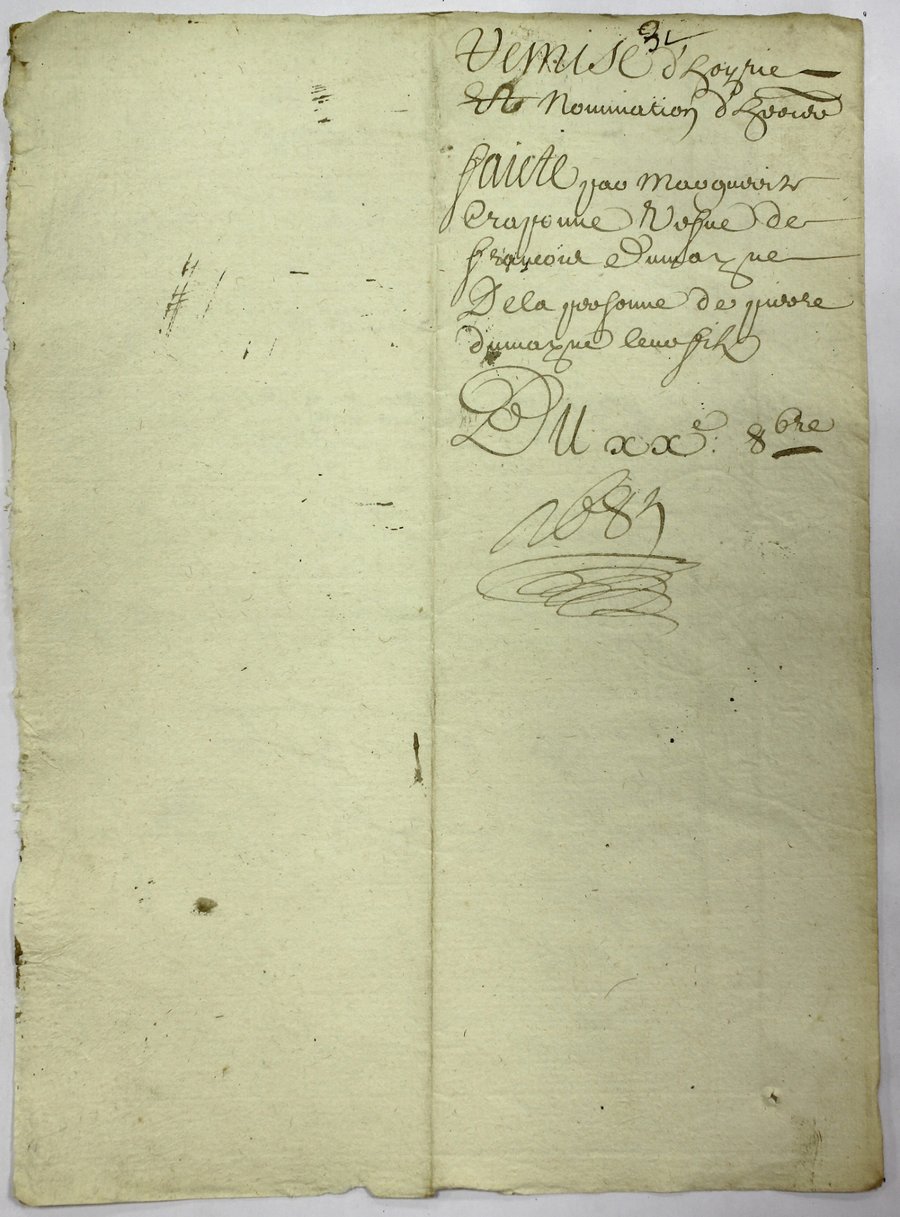 Remise d'hoyrie
Et Nomination d'heritier
faicte par Marguerite
Craponne Vefue de
françois Dumayne
De la personne de pierre
dumayne leur filz
Du xxe. 8bre
168